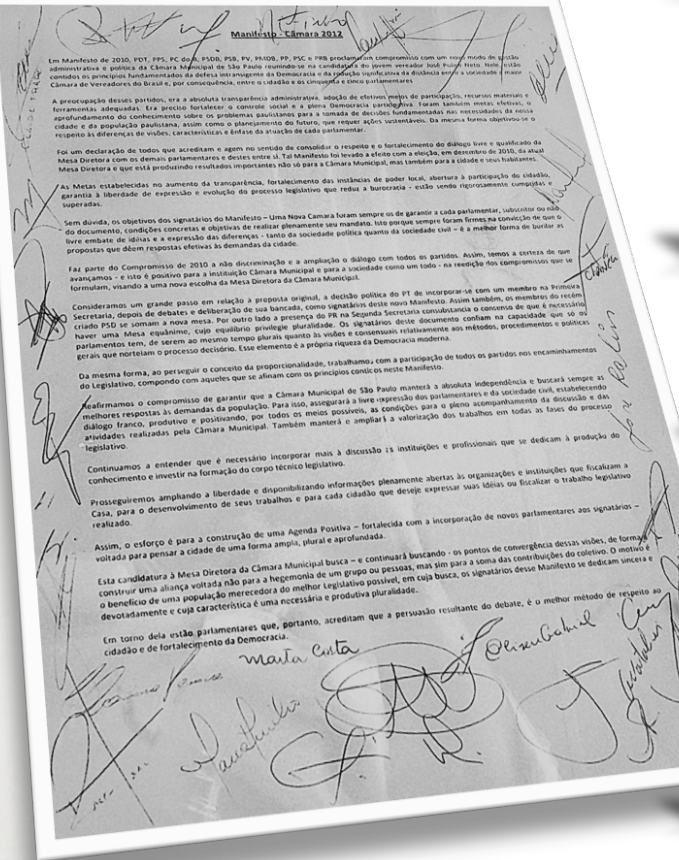 Manifesto - Câmara 2012
Em Manifesto de 2010, PDT, PPS, PC do B, PSDB, PSB, PV, PMDB, PP, PSC e PRB proclamaram compromisso com um novo modo de gestão
administrativa e política da Câmara Municipal de São Paulo reunindo-se na candidatura do jovem vereador José Police Neto. Nele, estão
contidos os princípios fundamentados da defesa intransigente da Democracia e da redução significativa da distância entre a sociedade e maior
Câmara de Vereadores do Brasil e, por consequência, entre o cidadão e os cinquenta e cinco parlamentares
A preocupação desses partidos, era a absoluta transparência administrativa, adoção de efetivos meios de participação, recursos materiais e
ferramentas adequadas. Era preciso fortalecer o controle social e a plena Democracia participativa. Foram também metas efetivas, o
aprofundamento do conhecimento sobre os problemas paulistanos para a tomada de decisões fundamentadas nas necessidades da nossa
cidade e da população paulistana, assim como o planejamento do futuro, que requer ações sustentáveis. Da mesma forma objetivou-se o
respeito às diferenças de visões, características e ênfase da atuação de cada parlamentar.
Foi um declaração de todos que acreditam e agem no sentido de consolidar o respeito e o fortalecimento do diálogo livre e qualificado da
Mesa Diretora com os demais parlamentares e destes entre si. Tal Manifesto foi levado a efeito com a eleição, em dezembro de 2010, da atual
Mesa Diretora e que está produzindo resultados importantes não só para a Câmara Municipal, mas também para a cidade e seus habitantes.
As Metas estabelecidas no aumento da transparência, fortalecimento das instâncias de poder local, abertura à participação do cidadão,
garantia à liberdade de expressão e evolução do processo legislativo que reduz a burocracia - estão sendo rigorosamente cumpridas e
superadas.
Sem dúvida, os objetivos dos signatários do Manifesto – Uma Nova Camara foram sempre os de garantir a cada parlamentar, subscritor ou não
do documento, condições concretas e objetivas de realizar plenamente seu mandato. Isto porque sempre foram firmes na convicção de que o
livre embate de idéias e a expressão das diferenças - tanto da sociedade política quanto da sociedade civil – é a melhor forma de burilar as
propostas que dêem respostas efetivas às demandas da cidade.
Faz parte do Compromisso de 2010 a não discriminação e a ampliação do diálogo com todos os partidos. Assim, temos a certeza de que
avançamos - e isto é positivo para a instituição Câmara Municipal e para a sociedade como um todo - na reedição dos compromissos que se
formulam, visando a uma nova escolha da Mesa Diretora da Câmara Municipal.
Consideramos um grande passo em relação à proposta original, a decisão política do PT de incorporar-se com um membro na Primeira
Secretaria, depois de debates e deliberação de sua bancada, como signatários deste novo Manifesto. Assim também, os membros do recém
criado PSD se somam a nova mesa. Por outro lado a presença do PR na Segunda Secretaria consubstancia o consenso de que é necessário
haver uma Mesa equânime, cujo equilíbrio privilegie pluralidade. Os signatários deste documento confiam na capacidade que só os
parlamentos tem, de serem ao mesmo tempo plurais quanto às visões e consensuais relativamente aos métodos, procedimentos e políticas
gerais que norteiam o processo decisório. Esse elemento é a própria riqueza da Democracia moderna.
Da mesma forma, ao perseguir o conceito da proporcionalidade, trabalhamos, com a participação de todos os partidos nos encaminhamentos
do Legislativo, compondo com aqueles que se afinam com os princípios contidos neste Manifesto.
Reafirmamos o compromisso de garantir que a Câmara Municipal de São Paulo manterá a absoluta independência e buscará sempre as
melhores respostas às demandas da população. Para isso, assegurará a livre expressão dos parlamentares e da sociedade civil, estabelecendo
diálogo franco, produtivo e positivando, por todos os meios possíveis, as condições para o pleno acompanhamento da discussão e das
atividades realizadas pela Câmara Municipal. Também manterá e ampliará a valorização dos trabalhos em todas as fases do processo
legislativo.
Continuamos a entender que é necessário incorporar mais à discussão as instituições e profissionais que se dedicam à produção do
conhecimento e investir na formação do corpo técnico legislativo.
Prosseguiremos ampliando a liberdade e disponibilizando informações plenamente abertas às organizações e instituições que fiscalizam a
Casa, para o desenvolvimento de seus trabalhos e para cada cidadão que deseje expressar suas idéias ou fiscalizar o trabalho legislativo
realizado.
Assim, o esforço é para a construção de uma Agenda Positiva – fortalecida com a incorporação de novos parlamentares aos signatários –
voltada para pensar a cidade de uma forma ampla, plural e aprofundada.
Esta candidatura à Mesa Diretora da Câmara Municipal busca – e continuará buscando - os pontos de convergência dessas visões, de forma a
construir uma aliança voltada não para a hegemonia de um grupo ou pessoas, mas sim para a soma das contribuições do coletivo. O motivo é
o benefício de uma população merecedora do melhor Legislativo possível, em cuja busca, os signatários desse Manifesto se dedicam sincera e
devotadamente e cuja característica é uma necessária e produtiva pluralidade.
Em torno dela estão parlamentares que, portanto, acreditam que a persuasão resultante do debate, é o melhor método de respeito ao
cidadão e de fortalecimento da Democracia.
Marta Costa